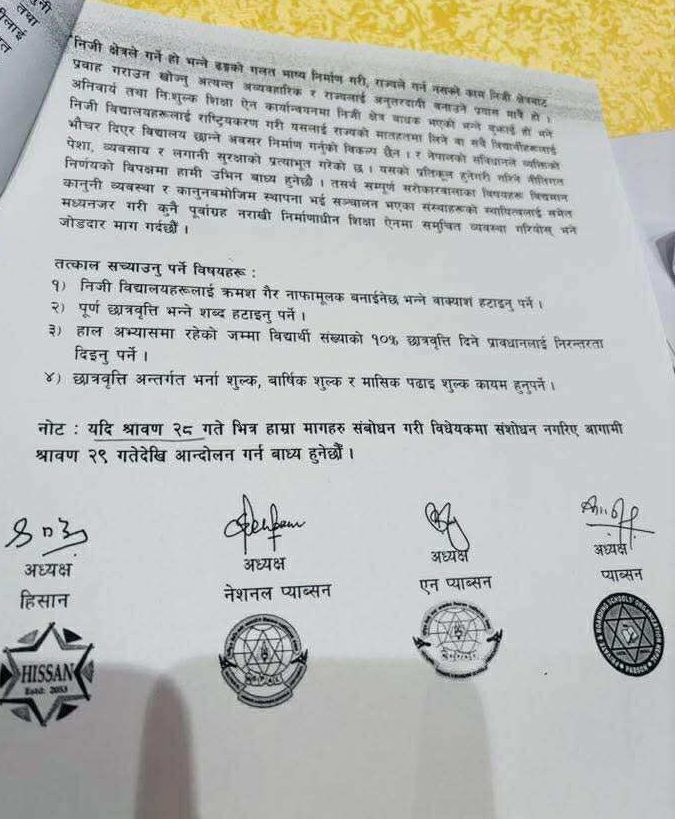 नी
तथा
लाई
निजी क्षेत्रले गर्ने हो भन्ने ढङ्गको गलत भाष्य निर्माण गरी, राज्यले गर्न नसक्ने काम निजी क्षेत्रबाट
प्रवाह गराउन खोज्नु अत्यन्त अव्यवहारिक र राज्यलाई अनुत्तरदायी बनाउने प्रयास मात्रै हो ।
अनिवार्य तथा निःशुल्क शिक्षा ऐन कार्यान्वयनमा निजी क्षेत्र बाधक भएको भन्ने बुझाई हो भने
निजी विद्यालयहरूलाई राष्ट्रियकरण गरी यसलाई राज्यको मातहतमा लिने वा सबै विद्यार्थीहरूलाई
भौचर दिएर विद्यालय छान्ने अवसर निर्माण गर्नुको विकल्प छैन । र नेपालको संविधानले व्यक्तिको
पेशा, व्यवसाय र लगानी सुरक्षाको प्रत्याभूत गरेको छ । यसको प्रतिकूल हुनेगरी गरिने नीतिगत
निर्णयको विपक्षमा हामी उभिन बाध्य हुनेछौं । तसर्थ सम्पूर्ण सरोकारवालाका विषयहरू विद्यमान
कानुनी व्यवस्था र कानुनबमोजिम स्थापना भई सञ्चालन भएका संस्थाहरूको स्थायित्वलाई समेत
मध्यनजर गरी कुनै पूर्वाग्रह नराखी निर्माणाधीन शिक्षा ऐनमा समुचित व्यवस्था गरियोस् भने
जोडदार माग गर्दछौं ।
तत्काल सच्याउनु पर्ने विषयहरू :
१) निजी विद्यालयहरूलाई क्रमश गैर नाफामूलक बनाईनेछ भन्ने वाक्याशं हटाइनु पर्ने ।
२) पूर्ण छात्रवृत्ति भन्ने शब्द हटाइनु पर्ने ।
३) हाल अभ्यासमा रहेको जम्मा विद्यार्थी संख्याको १०% छात्रवृत्ति दिने प्रावधानलाई निरन्तरता
दिइनु पर्ने ।
४) छात्रवृत्ति अन्तर्गत भर्ना शुल्क, बार्षिक शुल्क र मासिक पढाइ शुल्क कायम हुनुपर्ने ।
नोट : यदि श्रावण २८ गते भित्र हाम्रा मागहरु संबोधन गरी विधेयकमा संशोधन नगरिए आगामी
श्रावण २९ गतेदेखि आन्दोलन गर्न बाध्य हुनेछौं ।
अध्यक्ष अध्यक्ष अध्यक्ष अध्यक्ष
हिसान नेशनल प्याब्सन एन प्याब्सन प्याब्सन
HISSAN
Estd: 2053